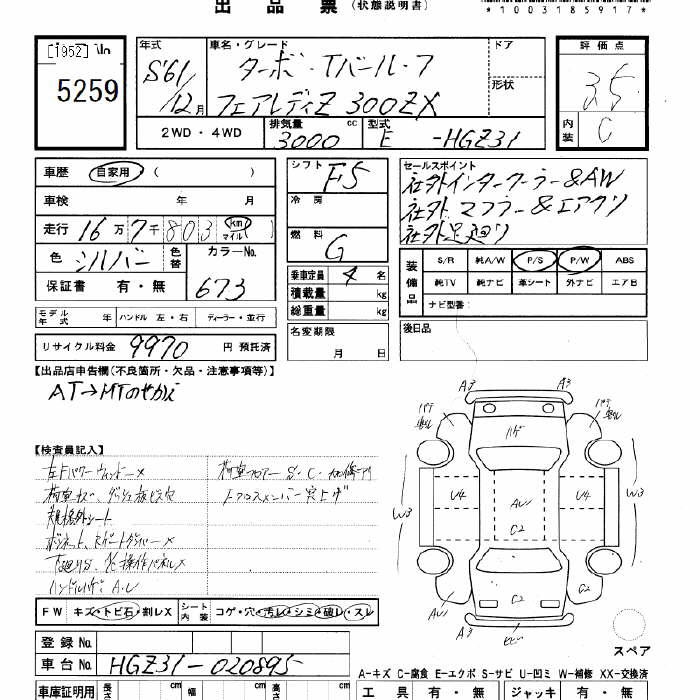 出品票(状態説明書)
*1003185917*
[1952]
5259
年式
S'61/12月
車名・グレード
ターボ・Tバールーフ
フェアレディZ 300ZX
ドア
形状
評価点
3.5
内装
C
2WD・4WD
排気量 3000 cc
型式 E -HGZ31
車歴 自家用 ( )
車検 年 月
走行 16万7千803 km マイル
色 シルバー 色替 カラーNo. 673
保証書 有・無
シフト F5
冷房
燃料 G
乗車定員 4 名
積載量 kg
総重量 kg
名変期限 月 日
セールスポイント
社外インタークーラー&AW
社外マフラー&エアクリ
社外足廻り
装備品
S/R 純A/W P/S P/W ABS
純TV 純ナビ 革シート 外ナビ エアB
ナビ型番:
後日品
モデル年式 年 ハンドル 左・右 ディーラー・並行
リサイクル料金 9970 円 預託済
【出品店申告欄(不良箇所・欠品・注意事項等)】
AT→MTのせかえ
【検査員記入】
左Fパワーウィンドー×
荷車フロアー S・C・
規格外シート
Fクロスメンバー突上げ
ハンドルハゲ A・レ
FW キズ・トビ石・割レX シート内装 コゲ・穴・汚レ・シミ・破レ・スレ
登録No.
車台No. HGZ31-020895
車庫証明用 長さ cm 幅 cm 高さ cm
A3 A3
ハゲ
U4 U4
W3 W3
C2
C2
A3
スペア
A-キズ C-腐食 E-エクボ S-サビ U-凹ミ W-補修 XX-交換済
工具 有・無 ジャッキ 有・無